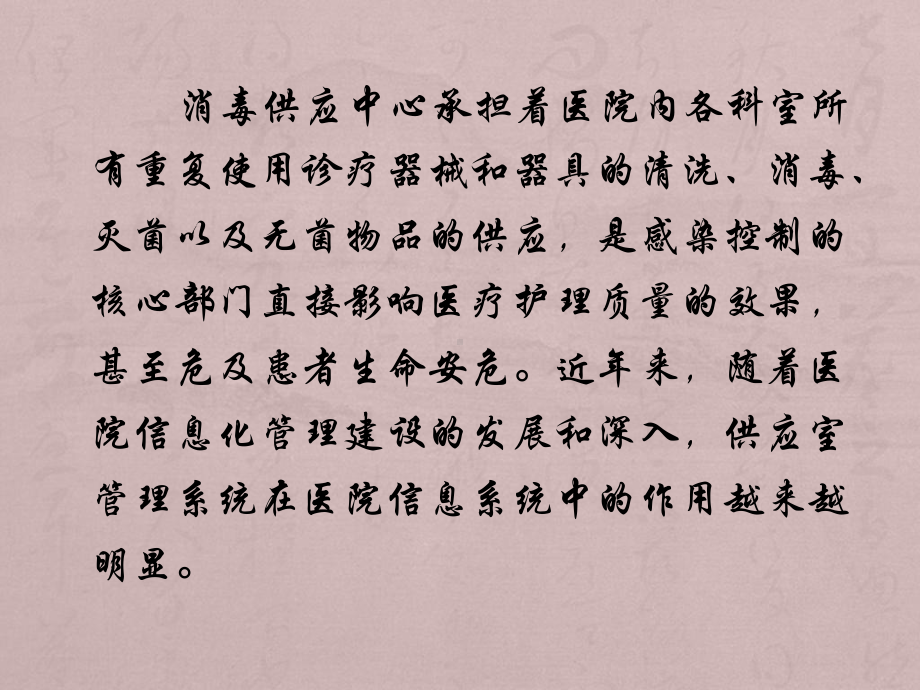 消毒供应中心承担着医院内各科室所
有重复使用诊疗器械和器具的清洗、消毒、
灭菌以及无菌物品的供应，是感染控制的
核心部门直接影响医疗护理质量的效果，
甚至危及患者生命安危。近年来，随着医
院信息化管理建设的发展和深入，供应室
管理系统在医院信息系统中的作用越来越
明显。